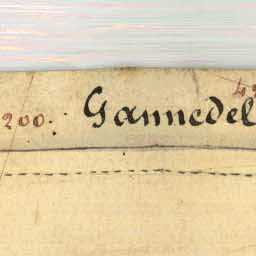 200. Gannedel